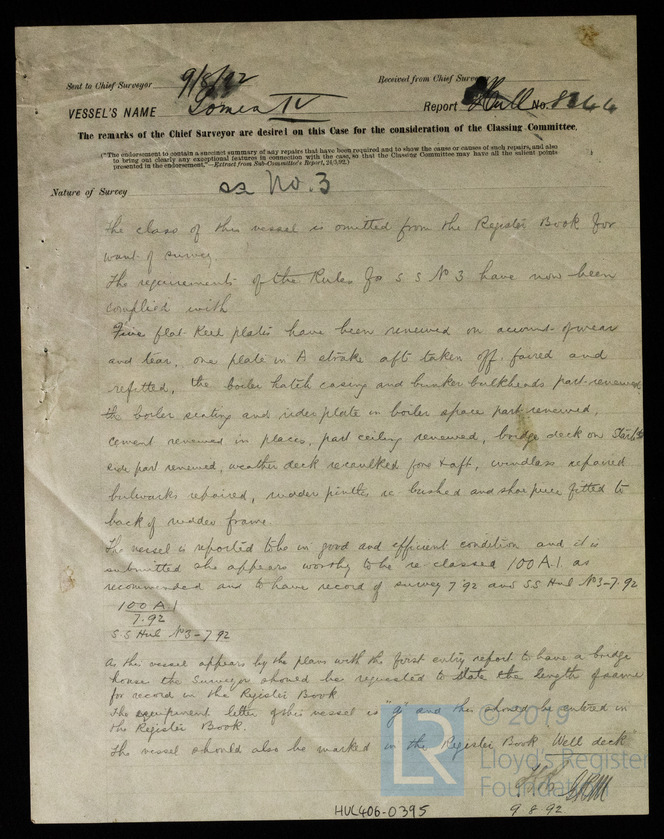 Sent to Chief Surveyor 9/8/92 Received from Chief Surveyor
VESSEL'S NAME Gomea IV Report Hull No. 8244
The remarks of the Chief Surveyor are desired on this Case for the consideration of the Classing Committee.
("The endorsement to contain a succinct summary of any repairs that have been required and to show the cause or causes of such repairs, and also
to bring out clearly any exceptional features in connection with the case, so that the Classing Committee may have all the salient points
presented in the endorsement."—Extract from Sub-Committee's Report, 24/3/92.)
Nature of Survey ss No. 3
The class of this vessel is omitted from the Register Book for
want of survey.
The requirements of the Rules for S S No 3 have now been
complied with
Five flat keel plates have been renewed on account of wear
and tear, one plate in A strake aft taken off, faired and
refitted, the boiler hatch casing and bunker bulkheads part renewed
the boiler seating and side plate in boiler space part renewed,
cement renewed in places, part ceiling renewed, bridge deck on Starbd
side part renewed, weather deck recaulked fore & aft, windlass repaired
bulwarks repaired, rudder pintles re bushed and shoe piece fitted to
back of rudder frame
The vessel is reported to be in good and efficient condition and it is
submitted she appears worthy to be re classed 100 A.1. as
recommended and to have record of survey 7.92 and S.S Hul No 3-7.92
100 A.1
7.92
S.S Hul No 3-7 92
As the vessel appears by the plans with the first entry report to have a bridge
house the Surveyor should be requested to state the length of same
for record in the Register Book
The equipment letter of this vessel is "g" and this should be entered in
the Register Book.
The vessel should also be marked in the Register Book Well deck
9 8.92
HUL406-0395
LR
© 2019
Lloyd's Register
Foundation